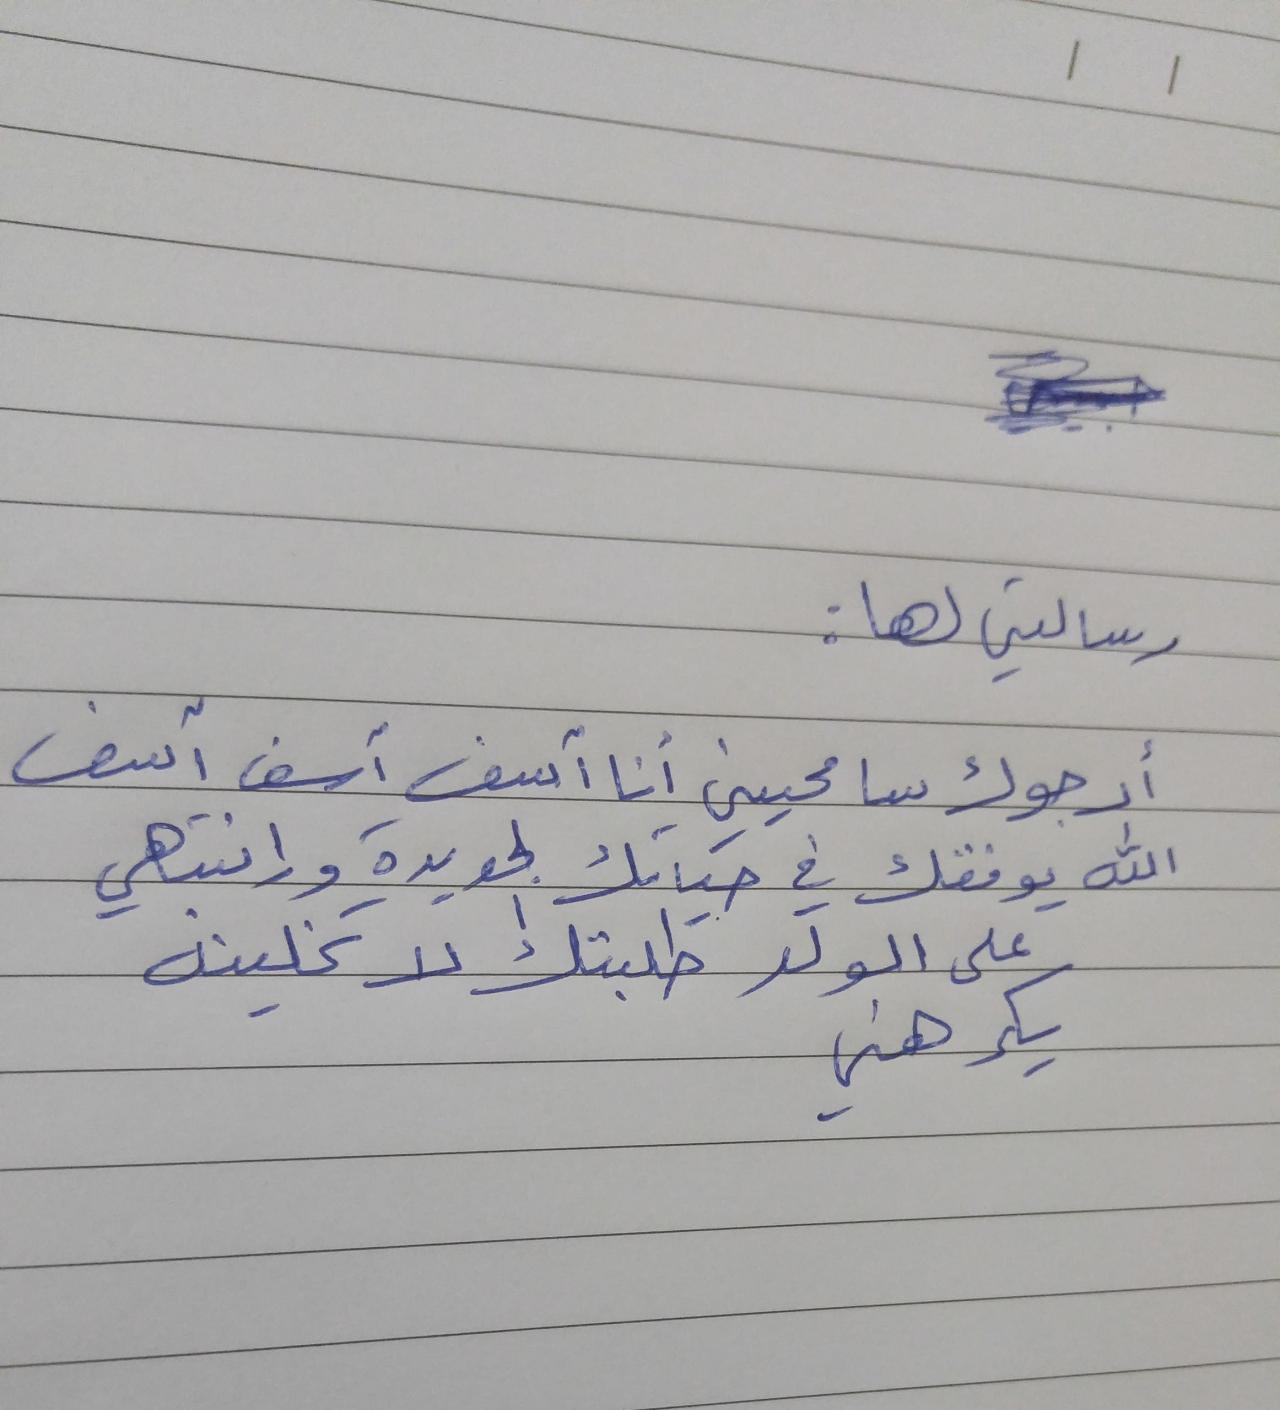 رسالتي لها:
أرجوك سامحيني أنا آسف آسف آسف
الله يوفقك في حياتك الجديدة وانتبهي
على الولد طلبتك لا تخلينه
يكرهني